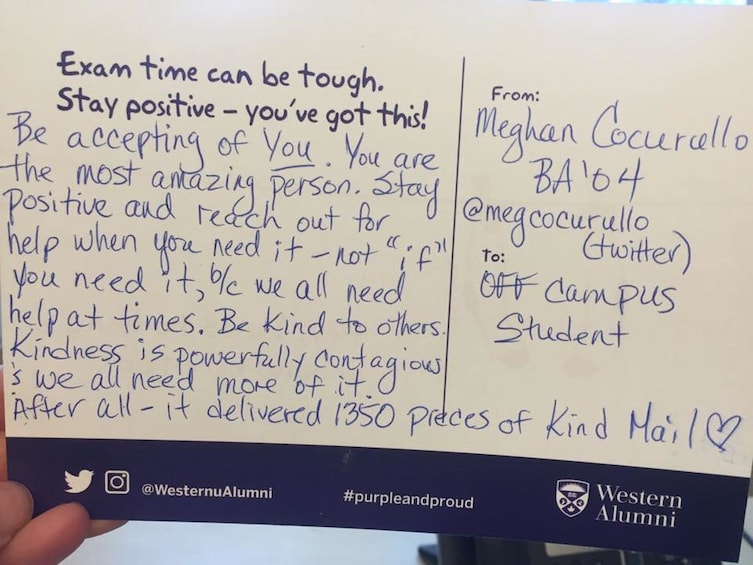 Exam time can be tough.
Stay positive – you've got this!
Be accepting of You. You are
the most amazing person. Stay
positive and reach out for
help when you need it – not "if"
you need it, b/c we all need
help at times. Be kind to others.
Kindness is powerfully contagious
& we all need more of it.
After all – it delivered 1350 pieces of Kind Mail ♡
From:
Meghan Cocurullo
BA '04
@megcocurullo
(twitter)
To:
OFF campus
Student
@WesternuAlumni
#purpleandproud
Western
Alumni